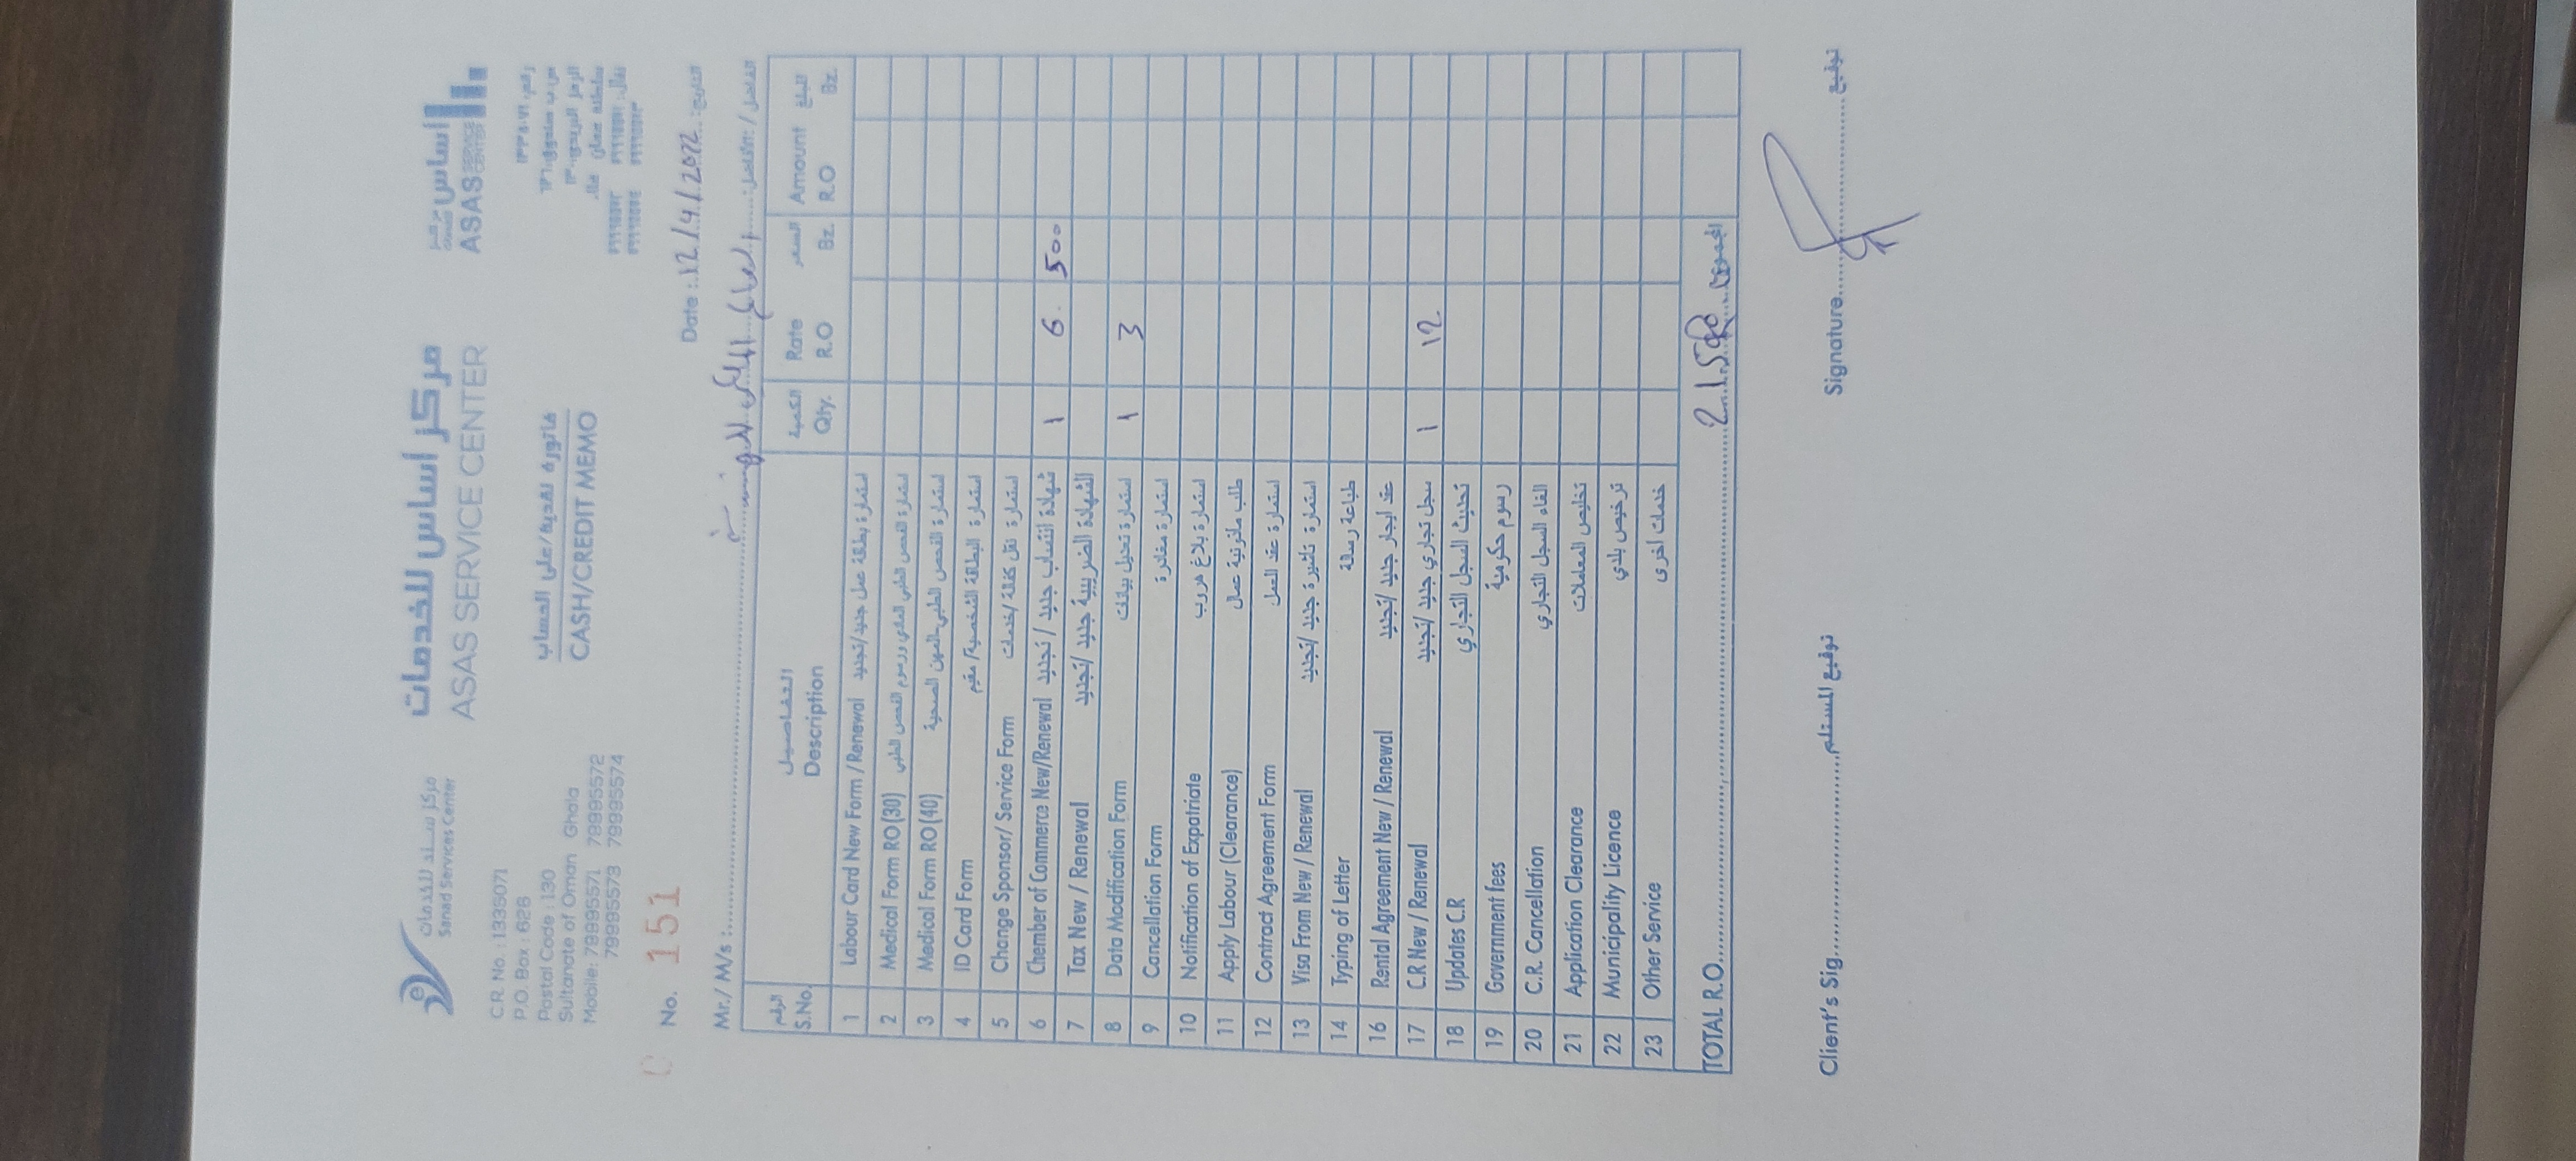 مركز ســنــد للخدمات
Sanad Services Center
مركز أساس للخدمات
ASAS SERVICE CENTER
أساس
ASAS SERVICE CENTER
C.R. No. : 1335071
P.O. Box : 626
Postal Code : 130
Sultanate of Oman Ghala
Mobile: 79995571 79995572
79995573 79995574
فاتورة نقدية/على الحساب
CASH/CREDIT MEMO
No. 151
Date : 12/4/2022 التاريخ:
Mr./ M/s : الفاضل / الأفاضل:
الرقم التفاصيل الكمية السعر المبلغ
S.No. Description Qty. Rate R.O Bz. Amount R.O Bz.
1 Labour Card New Form / Renewal استمارة بطاقة عمل جديد/تجديد
2 Medical Form RO (30) استمارة الفحص الطبي العادي ورسوم الفحص الطبي
3 Medical Form RO (40) استمارة الفحص الطبي-المهن الصحية
4 ID Card Form استمارة البطاقة الشخصية/ مقيم
5 Change Sponsor/ Service Form استمارة نقل كفالة /خدمات
6 Chember of Commerce New/Renewal شهادة انتساب جديد / تجديد 1 6. 500
7 Tax New / Renewal الشهادة الضريبية جديد /تجديد
8 Data Modification Form استمارة تعديل بيانات 1 3
9 Cancellation Form استمارة مغادرة
10 Notification of Expatriate استمارة بلاغ هروب
11 Apply Labour (Clearance) طلب مأذونية عمال
12 Contract Agreement Form استمارة عقد العمل
13 Visa From New / Renewal استمارة تأشيرة جديد /تجديد
14 Typing of Letter طباعة رسالة
16 Rental Agreement New / Renewal عقد ايجار جديد /تجديد
17 C.R New / Renewal سجل تجاري جديد /تجديد 1 12
18 Updates C.R تحديث السجل التجاري
19 Government fees رسوم حكومية
20 C.R. Cancellation الغاء السجل التجاري
21 Application Clearance تخليص المعاملات
22 Municipality Licence ترخيص بلدي
23 Other Service خدمات أخرى
TOTAL R.O. 21.500 المجموع
Client's Sig. توقيع المستلم Signature توقيع